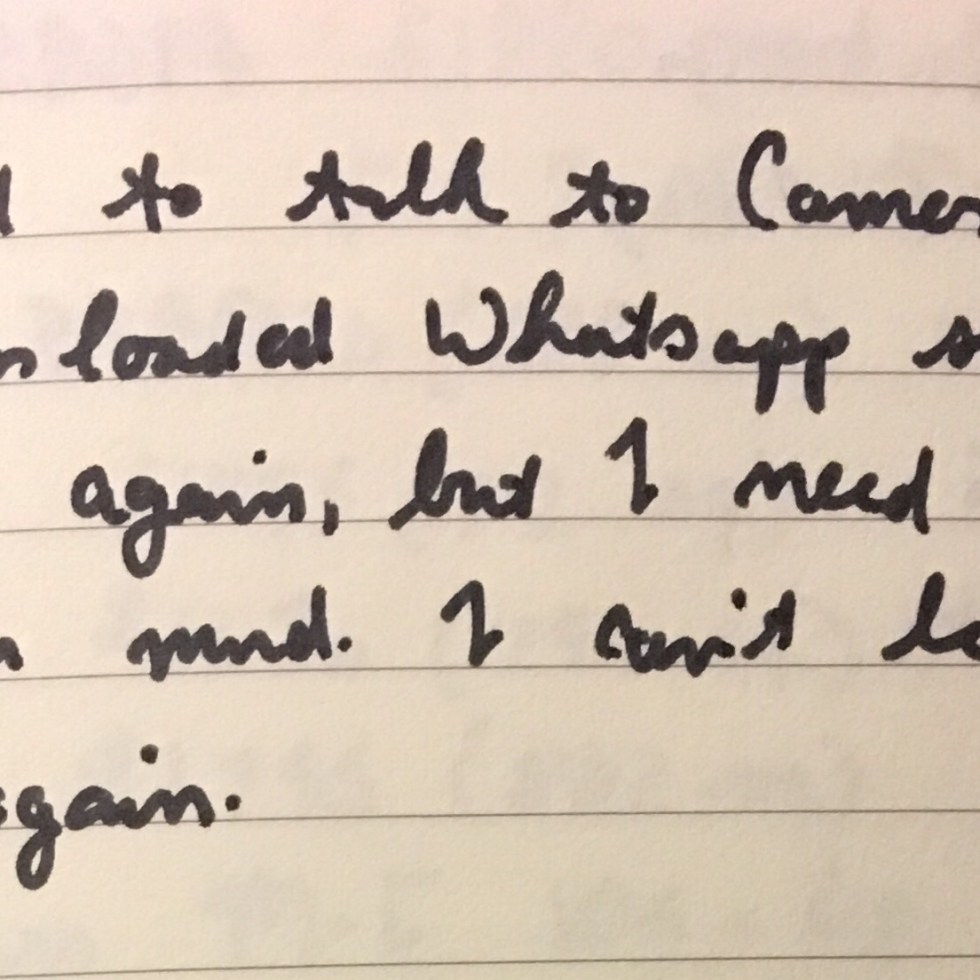 to talk to Camer
loaded Whatsapp s
again, but I need
mind. I can't lo
gain.